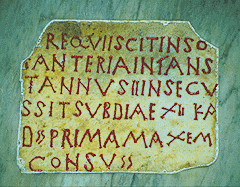 REQVIISCITINSO
ANTERIAINFANS
TANNVSIIINSECV
SSITSVBDIAEXIIKA
DSSPRIMAMAXEM
CONSVSS